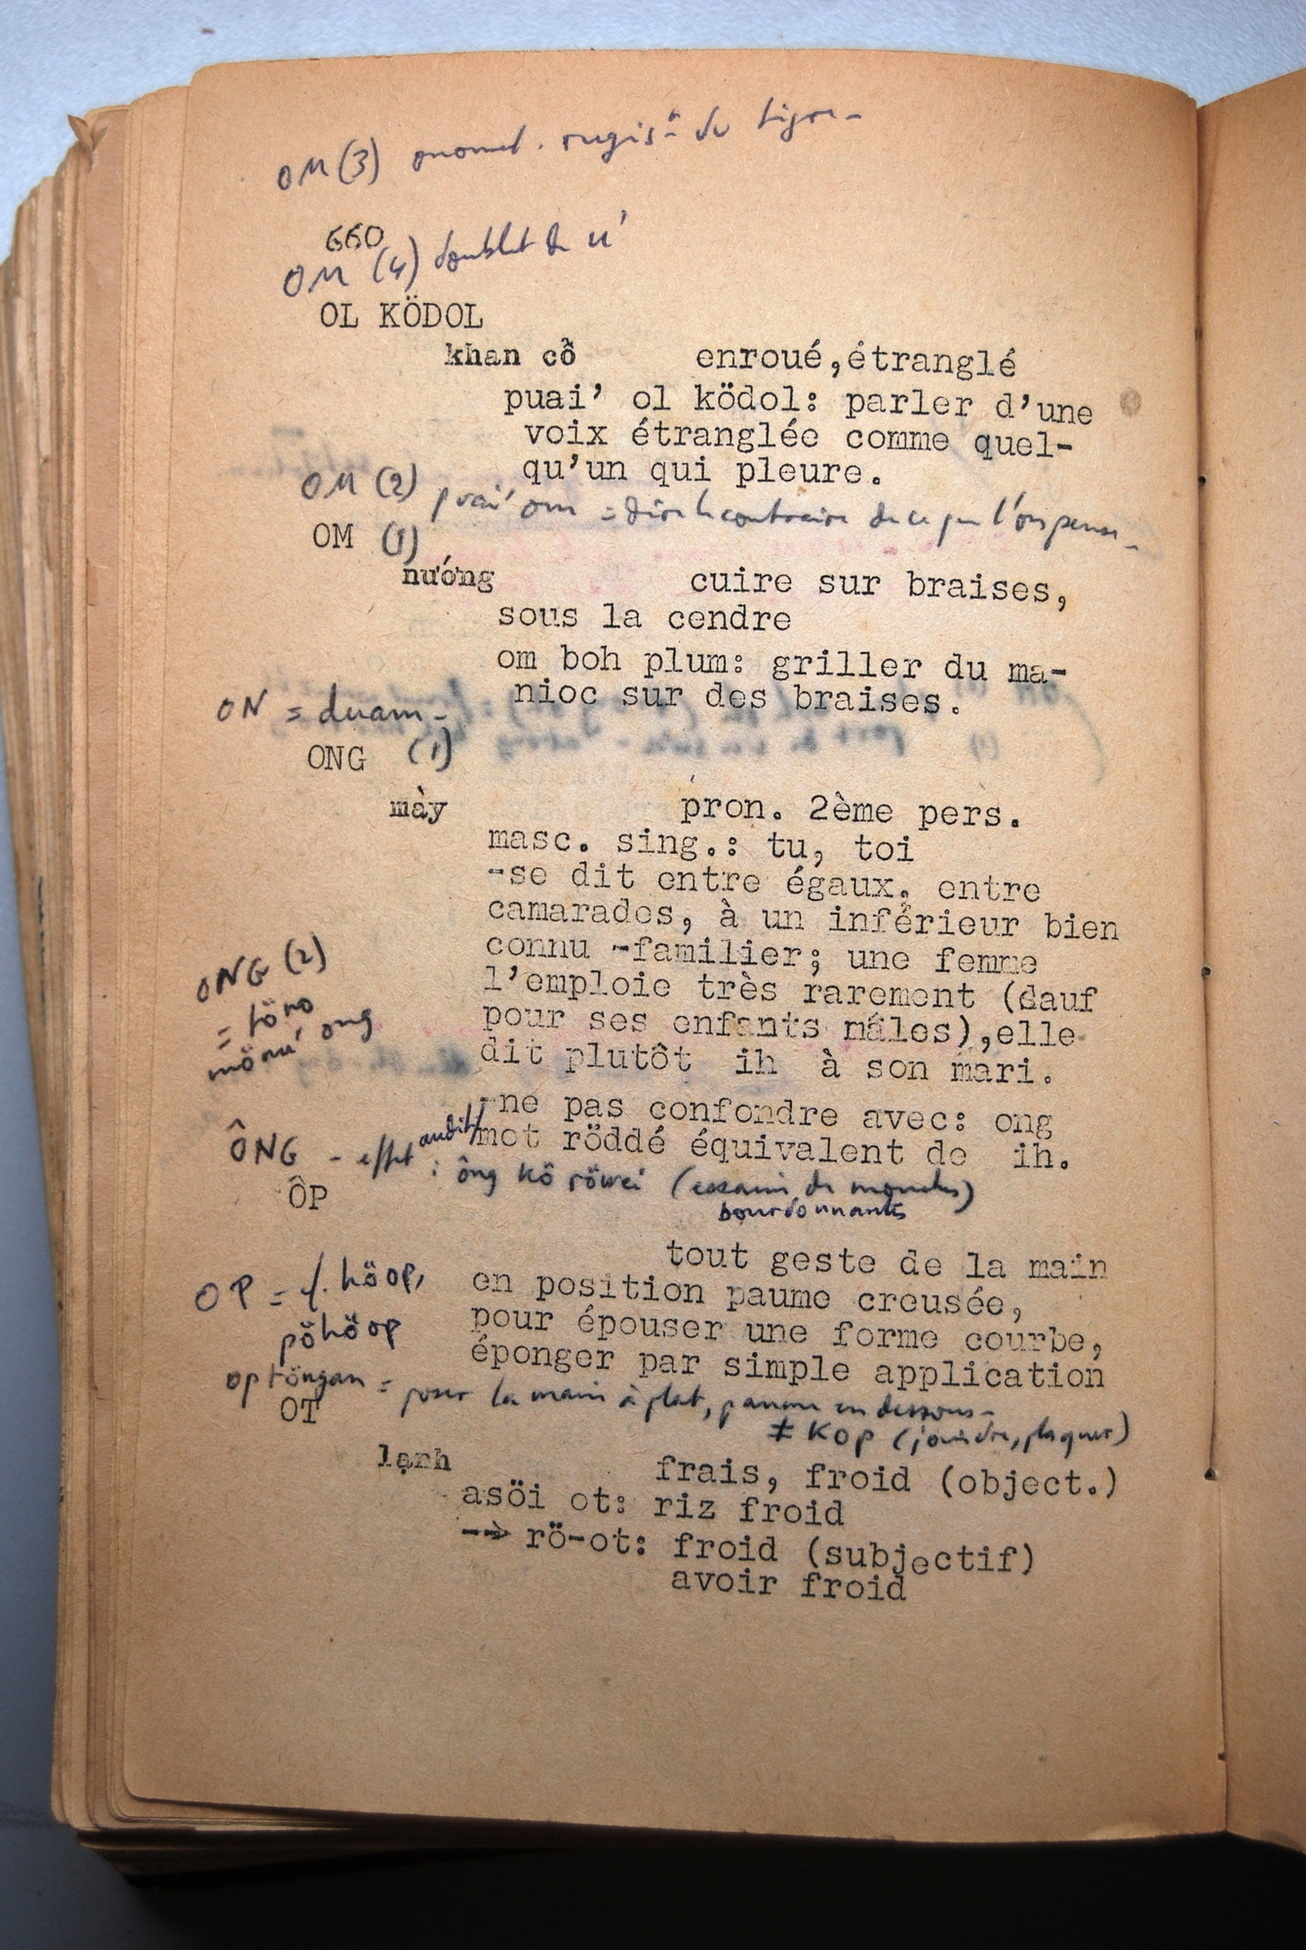 OM (3) onomat. rugis^t du tigre-
660
OM (4) doublet de u'
OL KÖDOL
khan cổ enroué,étranglé
puai' ol ködol: parler d'une
voix étranglée comme quel-
qu'un qui pleure.
OM (2) puai' om = dire le contraire de ce que l'on pense-
OM (1)
nướng cuire sur braises,
sous la cendre
om boh plum: griller du ma-
nioc sur des braises.
ON = duam-
ONG (1)
mày pron. 2ème pers.
masc. sing.: tu, toi
-se dit entre égaux, entre
camarades, à un inférieur bien
connu -familier; une femme
l'emploie très rarement (dauf
pour ses enfants mâles),elle
dit plutôt ih à son mari.
ONG (2)
= töno
mönu' ong
-ne pas confondre avec: ong
mot röddé équivalent de ih.
ÔNG - effet audit/ : ông kô röwei (essaim de mouches)
bourdonnants
ÔP
tout geste de la main
en position paume creusée,
pour épouser une forme courbe,
éponger par simple application
OP = f. höop,
pöhöop
op töngan = poser la main à plat, paume en dessous-
≠ KOP (joindre, plaquer)
OT
lạnh frais, froid (object.)
asöi ot: riz froid
--> rö-ot: froid (subjectif)
avoir froid